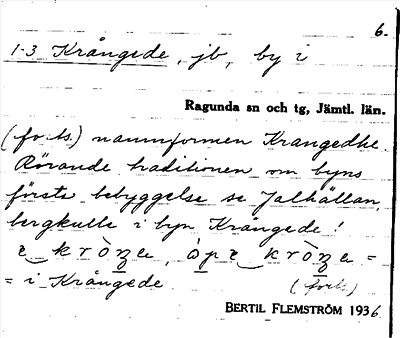 6.
1-3 Krångede, jb, by i
Ragunda sn och tg, Jämtl. län.
(forts.) namnformen Krangedhe.
Rörande traditionen om byns
första bebyggelse se Jalhällan
bergkulle i byn Krångede!
= i Krångede. (forts.)
BERTIL FLEMSTRÖM 1936